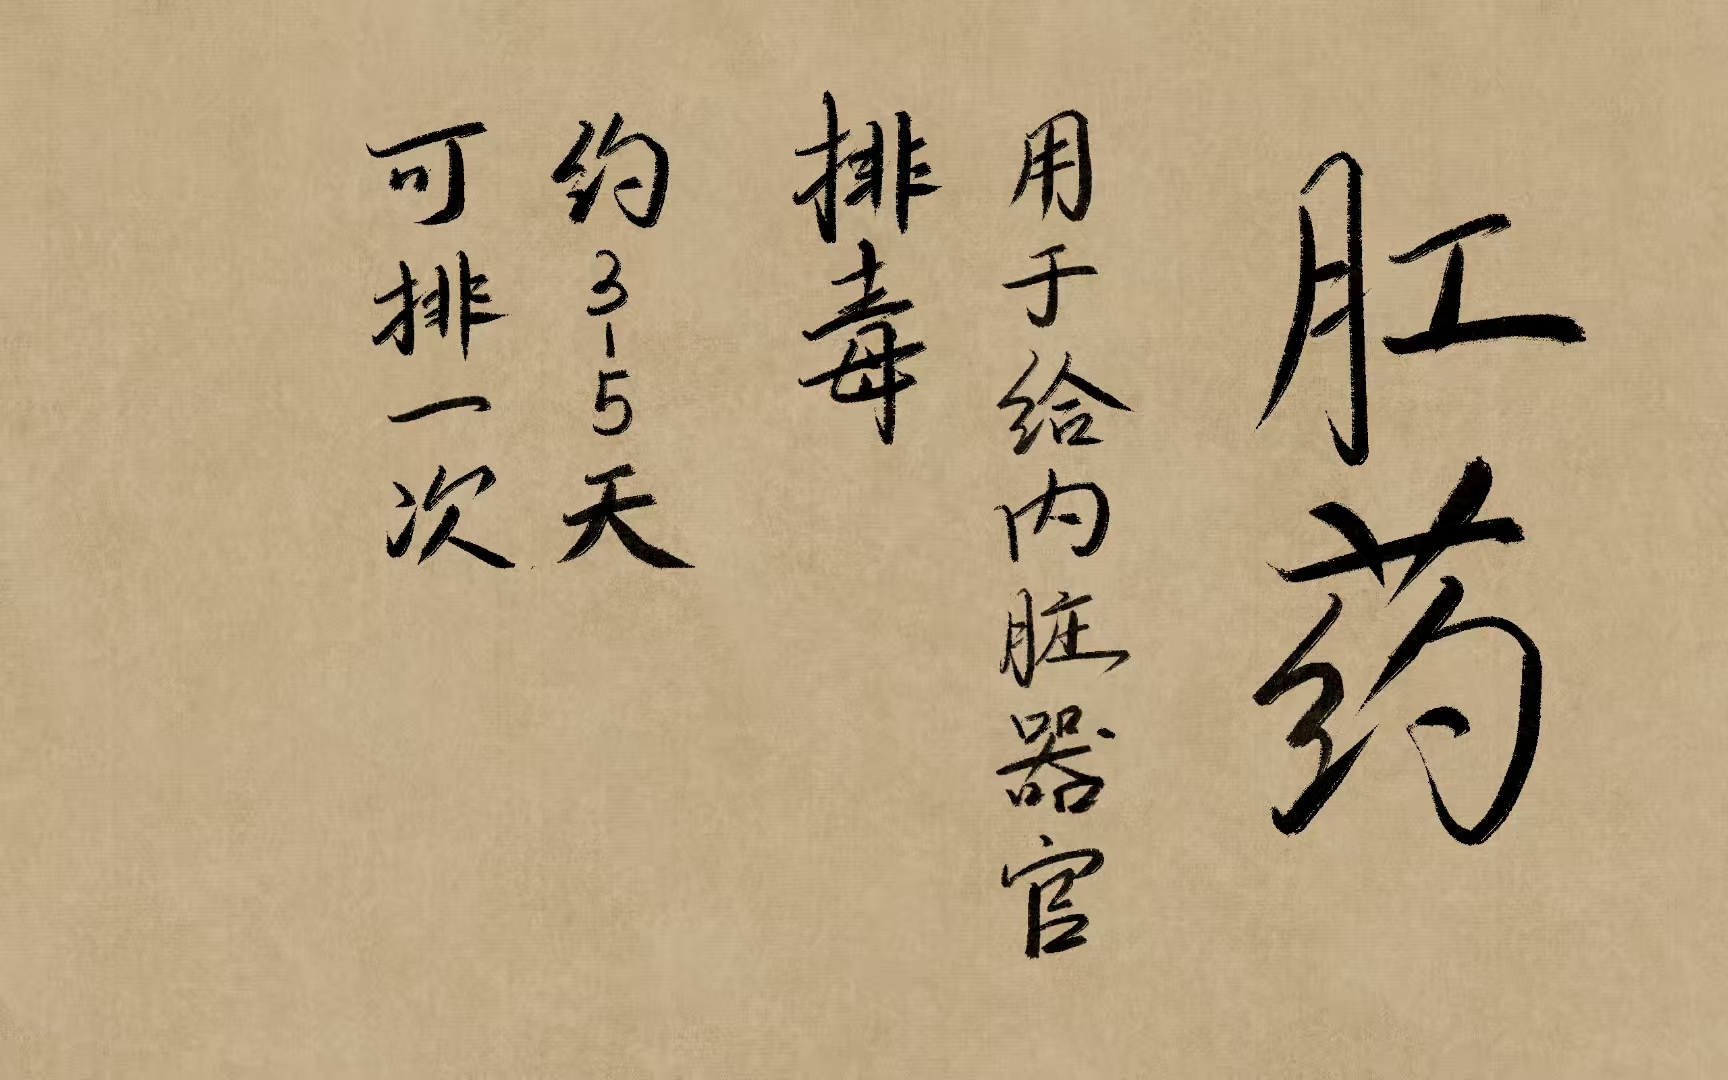 肛药
用于给内脏器官
排毒
约3-5天
可排一次